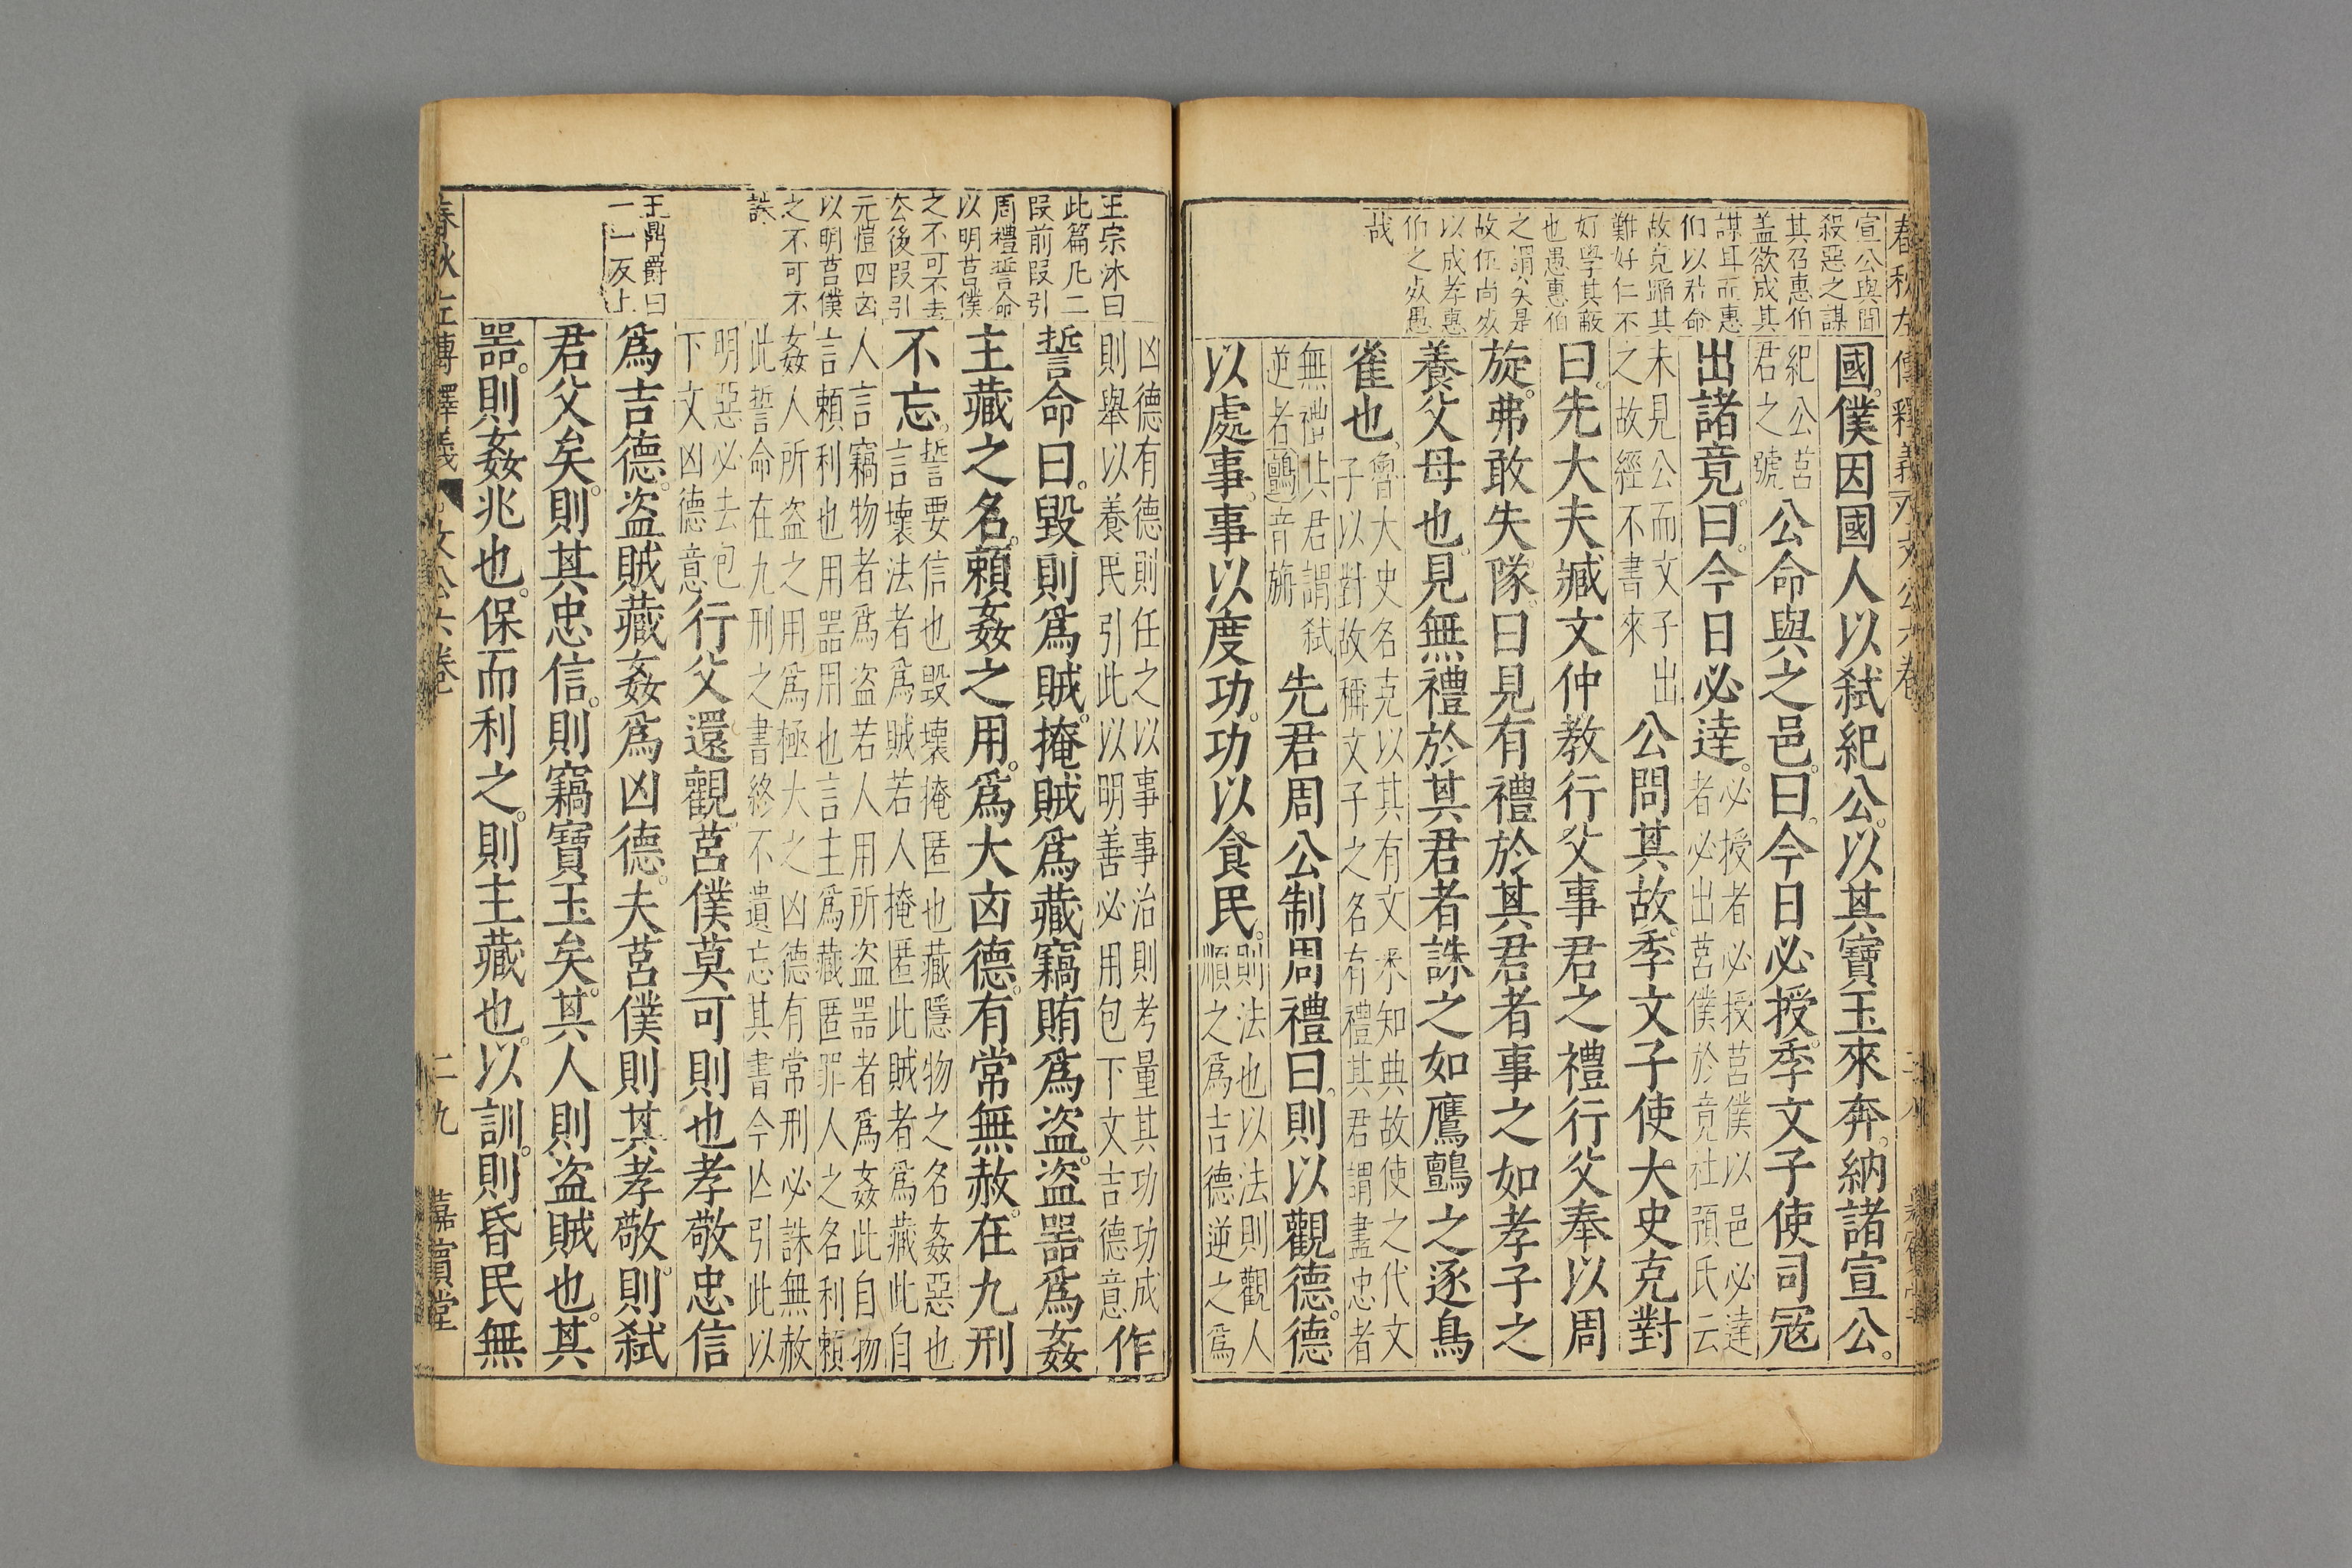 宣公與聞
殺惡之謀
其召惠伯
蓋欲成其
謀耳而惠
伯以君命
故竟踊其
難好仁不
好學其蔽
也愚惠伯
之謂矣是
故仁尚焉
以成孝惠
伯之死愚
哉
國僕因國人以弑紀公以其寶玉來奔納諸宣公
紀公莒
君之號
公命與之邑曰今日必授季文子使司寇
出諸竟曰今日必達
必授者必授莒僕以邑必達
者必出莒僕於竟杜預氏云
未見公而文子出
之故經不書來
公問其故季文子使大史克對
曰先大夫臧文仲教行父事君之禮行父奉以周
旋弗敢失隊曰見有禮於其君者事之如孝子之
養父母也見無禮於其君者誅之如鷹鸇之逐鳥
雀也
魯大史名克以其有文釆知典故使之代文
子以對故稱文子之名有禮其君謂盡忠者
無禮其君謂弑
逆者鸇音旃
先君周公制周禮曰則以觀德德
以處事事以度功功以食民
則法也以法則觀人
順之爲吉德逆之爲
王宗沐曰
此篇凡二
叚前叚引
周禮誓命
以明莒僕
之不可不去
公後叚引
元愷四凶
以明莒僕
之不可不
誅
王鼎爵曰
一一反上
凶德有德則任之以事事治則考量其功功成
則舉以養民引此以明善必用包下文吉德意
作
誓命曰毀則爲賊掩賊爲藏竊賄爲盜盜噐爲姦
主藏之名賴姦之用爲大凶德有常無赦在九刑
不忘
誓要信也毀壞掩匿也藏隱物之名姦惡也
言壞法者爲賊若人掩匿此賊者爲藏此自
人言竊物者爲盜若人用所盜噐者爲姦此自物
言賴利也用噐用也言主爲藏匿罪人之名利賴
姦人所盜之用爲極大之凶德有常刑必誅無赦
此誓命在九刑之書終不遺忘其書今亾引此以
明惡必去包
下文凶德意
行父還觀莒僕莫可則也孝敬忠信
爲吉德盜賊藏姦爲凶德夫莒僕則其孝敬則弑
君父矣則其忠信則竊寶玉矣其人則盜賊也其
噐則姦兆也保而利之則主藏也以訓則昏民無
春秋左傳釋義 文公六卷 二九 嘉賓堂